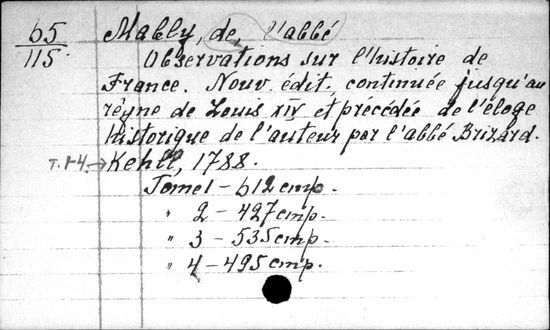 65
115.
Mably, de, l'abbé
Observations sur l'histoire de
France. Nouv. édit., continuée jusqu'au
règne de Louis XIV et précédée de l'éloge
historique de l'auteur par l'abbé Brizard.
т. 1-4. → Kehll, 1788.
Tome 1 - 612 стр.
" 2 - 427 стр.
" 3 - 535 стр.
" 4 - 495 стр.